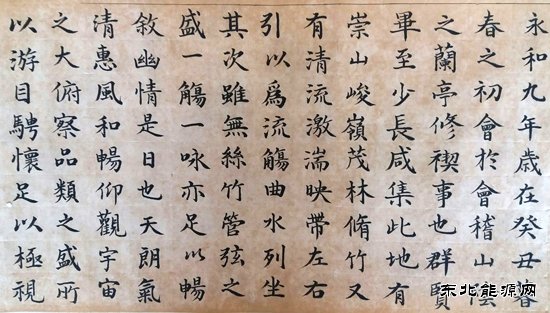 永和九年歲在癸丑暮
春之初會於會稽山陰
之蘭亭修禊事也群賢
畢至少長咸集此地有
崇山峻嶺茂林脩竹又
有清流激湍映帶左右
引以爲流觴曲水列坐
其次雖無絲竹管弦之
盛一觴一咏亦足以暢
敘幽情是日也天朗氣
清惠風和暢仰觀宇宙
之大俯察品類之盛所
以游目騁懷足以極視
东北能源网